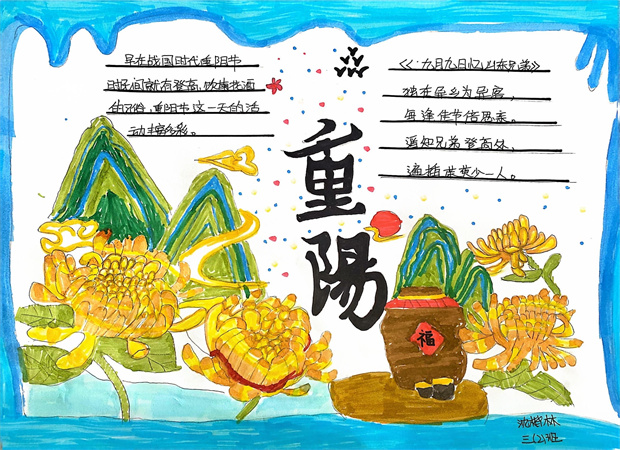 早在战国时代重阳节
时民间就有登高,饮菊花酒
的习俗,重阳节这一天的活
动丰富多彩。
重陽
《九月九日忆山东兄弟》
独在异乡为异客,
每逢佳节倍思亲。
遥知兄弟登高处,
遍插茱萸少一人。
福
三(2)班